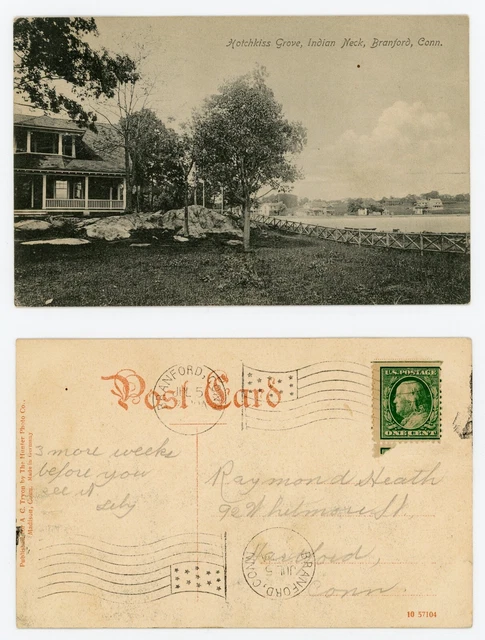 Hotchkiss Grove, Indian Neck, Branford, Conn.
Post Card
BRANFORD, CONN.
JUL 5
U.S. POSTAGE
ONE CENT
Published by A. C. Tryon by The Hunter Photo Co.,
Madison, Conn. Made in Germany
3 more weeks
before you
see it
Raymond Heath
Whitmore St.
Hartford,
Conn.
BRANFORD, CONN.
JUL 5
10 57104